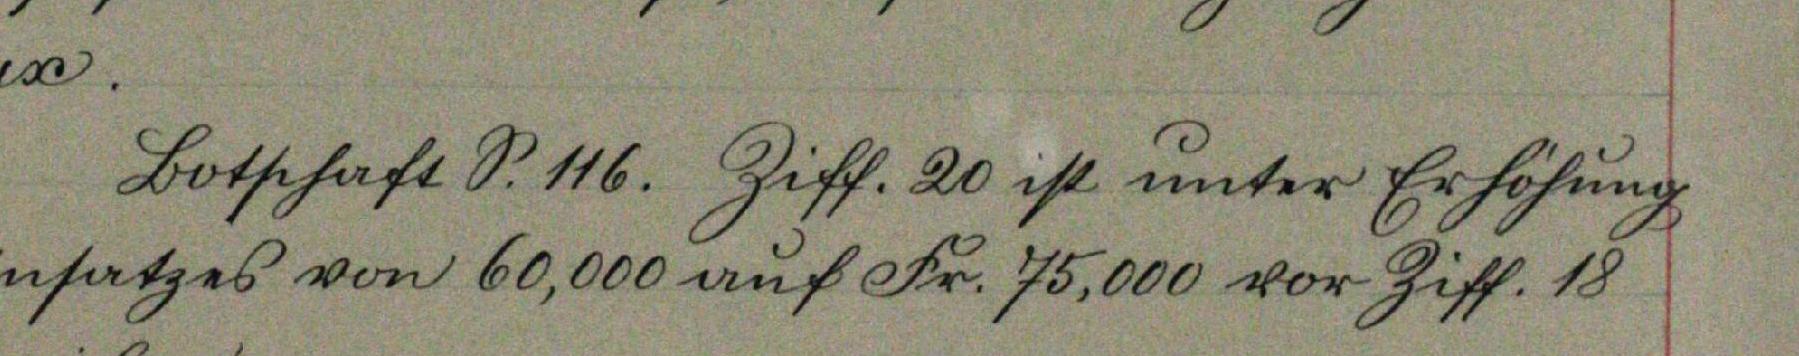 ux.
Botschaft S. 116. Ziff. 20 ist unter Erhöhung
nsatzes von 60,000 auf Fr. 75,000 vor Ziff. 18